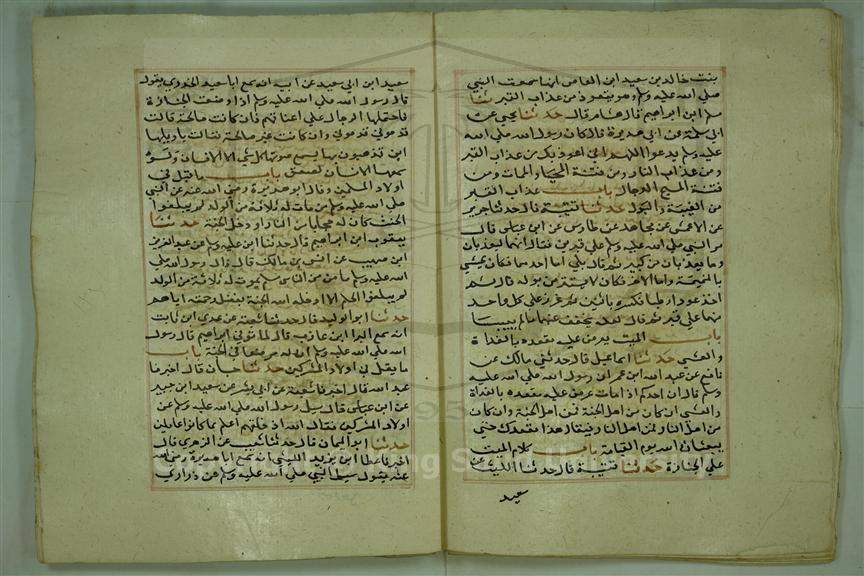 بنت خالد بن سعيد ابن العاص انها سمعت النبي
صلي الله عليه وسلم وهو يتعوذ من عذاب القبر حدثنا
مسلم ابن ابراهيم قال هشام قال حدثنا يحيي عن
ابي سلمة عن ابي هريرة قال كان رسول الله صلي الله
عليه وسلم يدعوا اللهم اني اعوذ بك من عذاب القبر
ومن عذاب النار ومن فتنة المحيا والممات ومن
فتنة المسيح الدجال باب عذاب القبر
من الغيبة والبول حدثنا قتيبة قال حدثنا جرير
عن الاعمش عن مجاهد عن طاوس عن ابن عباس قال
مر النبي صلي الله عليه وسلم علي قبرين فقال انهما ليعذبان
وما يعذبان من كبير ثم قال بلي اما احدهما فكان يمشي
بالنميمة واما الاخر فكان لا يستتر من بوله قال ثم
اخذ عودا رطبا فكسره باثنين ثم غرز علي كل واحد
منهما علي قبر ثم قال لعله يخفف عنهما ما لم ييبسا
باب الميت يعرض عليه مقعده بالغداة
والعشي حدثنا اسماعيل قال حدثني مالك عن
نافع عن عبد الله ابن عمر ان رسول الله صلي الله عليه
وسلم قال ان احدكم اذا مات عرض عليه مقعده بالغداة
والعشي ان كان من اهل الجنة فمن اهل الجنة وان كان
من اهل النار فمن اهل النار فيقال هذا مقعدك حتي
يبعثك الله يوم القيامة باب كلام الميت
علي الجنازة حدثنا قتيبة قال حدثنا الليث عن
سعيد
سعيد ابن ابي سعيد عن ابيه انه سمع ابا سعيد الخدري يقول
قال رسول الله صلي الله عليه وسلم اذا وضعت الجنازة
فاحتملها الرجال علي اعناقهم فان كانت صالحة قالت
قدموني قدموني وان كانت غير صالحة قالت يا ويلها
اين تذهبون بها يسمع صوتها كل شي الا الانسان ولو
سمعها الانسان لصعق باب ما قيل في
اولاد المسلمين وقال ابو هريرة رضي الله عنه عن النبي
صلي الله عليه وسلم من مات له ثلاثة من الولد لم يبلغوا
الحنث كان له حجابا من النار او دخل الجنة حدثنا
يعقوب ابن ابراهيم قال حدثنا ابن عليه عن عبد العزيز
ابن صهيب عن انس بن مالك قال قال رسول الله صلي
الله عليه وسلم ما من الناس مسلم يموت له ثلاثة من الولد
لم يبلغوا الحلم الا ادخله الله الجنة بفضل رحمته اياهم
حدثنا ابو الوليد قال حدثنا شعبة عن عدي ابن ثابت
انه سمع البرا ابن عازب قال لما توفي ابراهيم قال رسول
الله صلي الله عليه وسلم ان له مرضعا في الجنة باب
ما يقل في اولاد المشركين حدثنا حبان قال اخبرنا
عبد الله قال اخبرنا شعبة عن ابي بشر عن سعيد ابن جبير
عن ابن عباس قال سيل رسول الله صلي الله عليه وسلم عن
اولاد المشركين فقال الله اذ خلقهم اعلم بما كانوا عاملين
حدثنا ابو اليمان قال حدثنا شعيب عن الزهري قال
اخبرنا عطا ابن يزيد الليثي انه سمع ابا هريرة رضي الله
عنه يقول سيل النبي صلي الله عليه وسلم عن ذراري